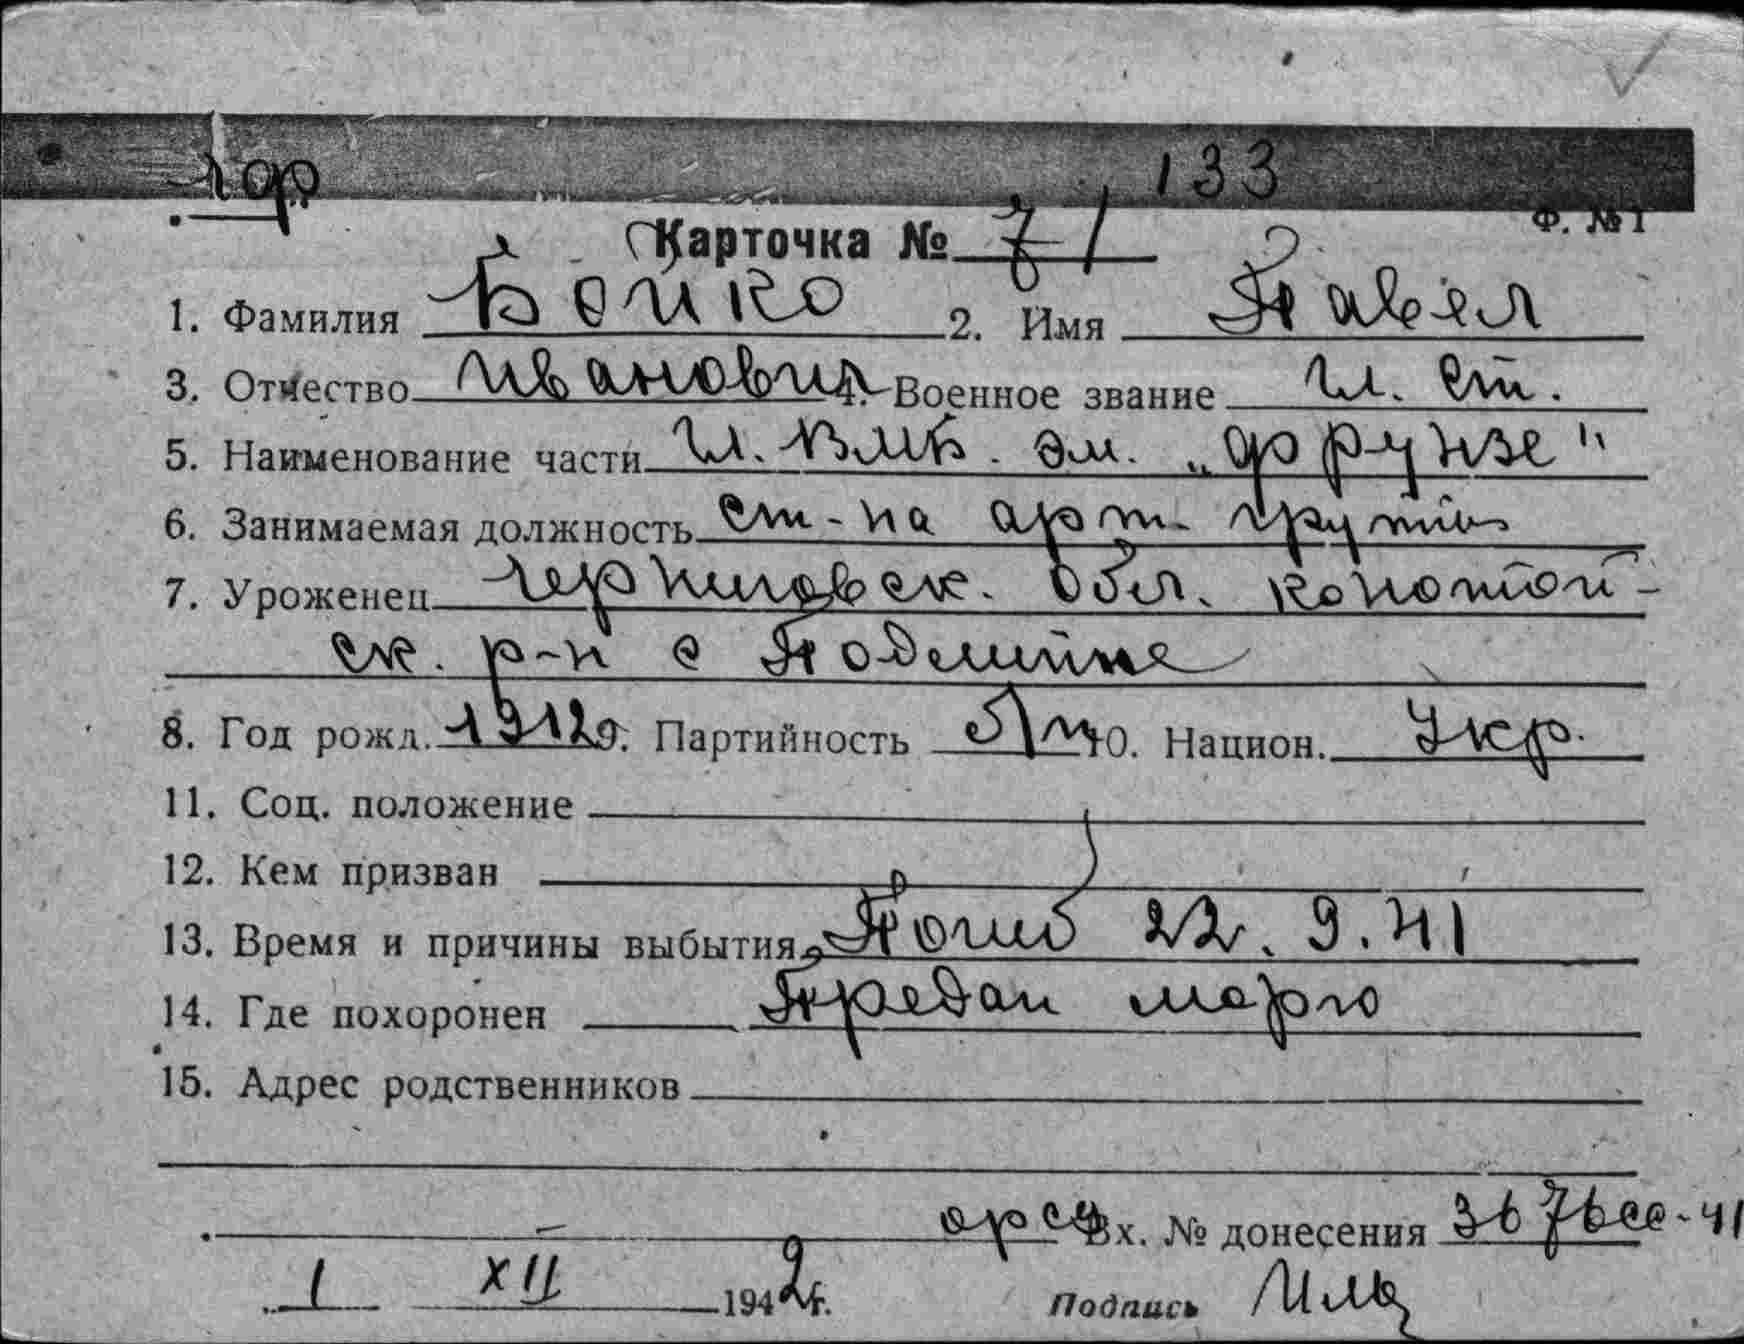 133
Ф. № 1
Карточка № 7/
1. Фамилия Бойко 2. Имя Павел
3. Отчество Иванович 4. Военное звание Гл. ст.
5. Наименование части Гл. ВМБ. эм. „Фрунзе"
6. Занимаемая должность ст-на арт. группы
7. Уроженец Черниговск. обл. Конотоп-
ск. р-н с Подлипне
8. Год рожд. 1912 9. Партийность б/п 10. Национ. Укр.
11. Соц. положение
12. Кем призван
13. Время и причины выбытия Погиб 22. 9. 41
14. Где похоронен Предан морю
15. Адрес родственников
орсу Вх. № донесения 3676сс-41
1 XII 1942 г. Подпись